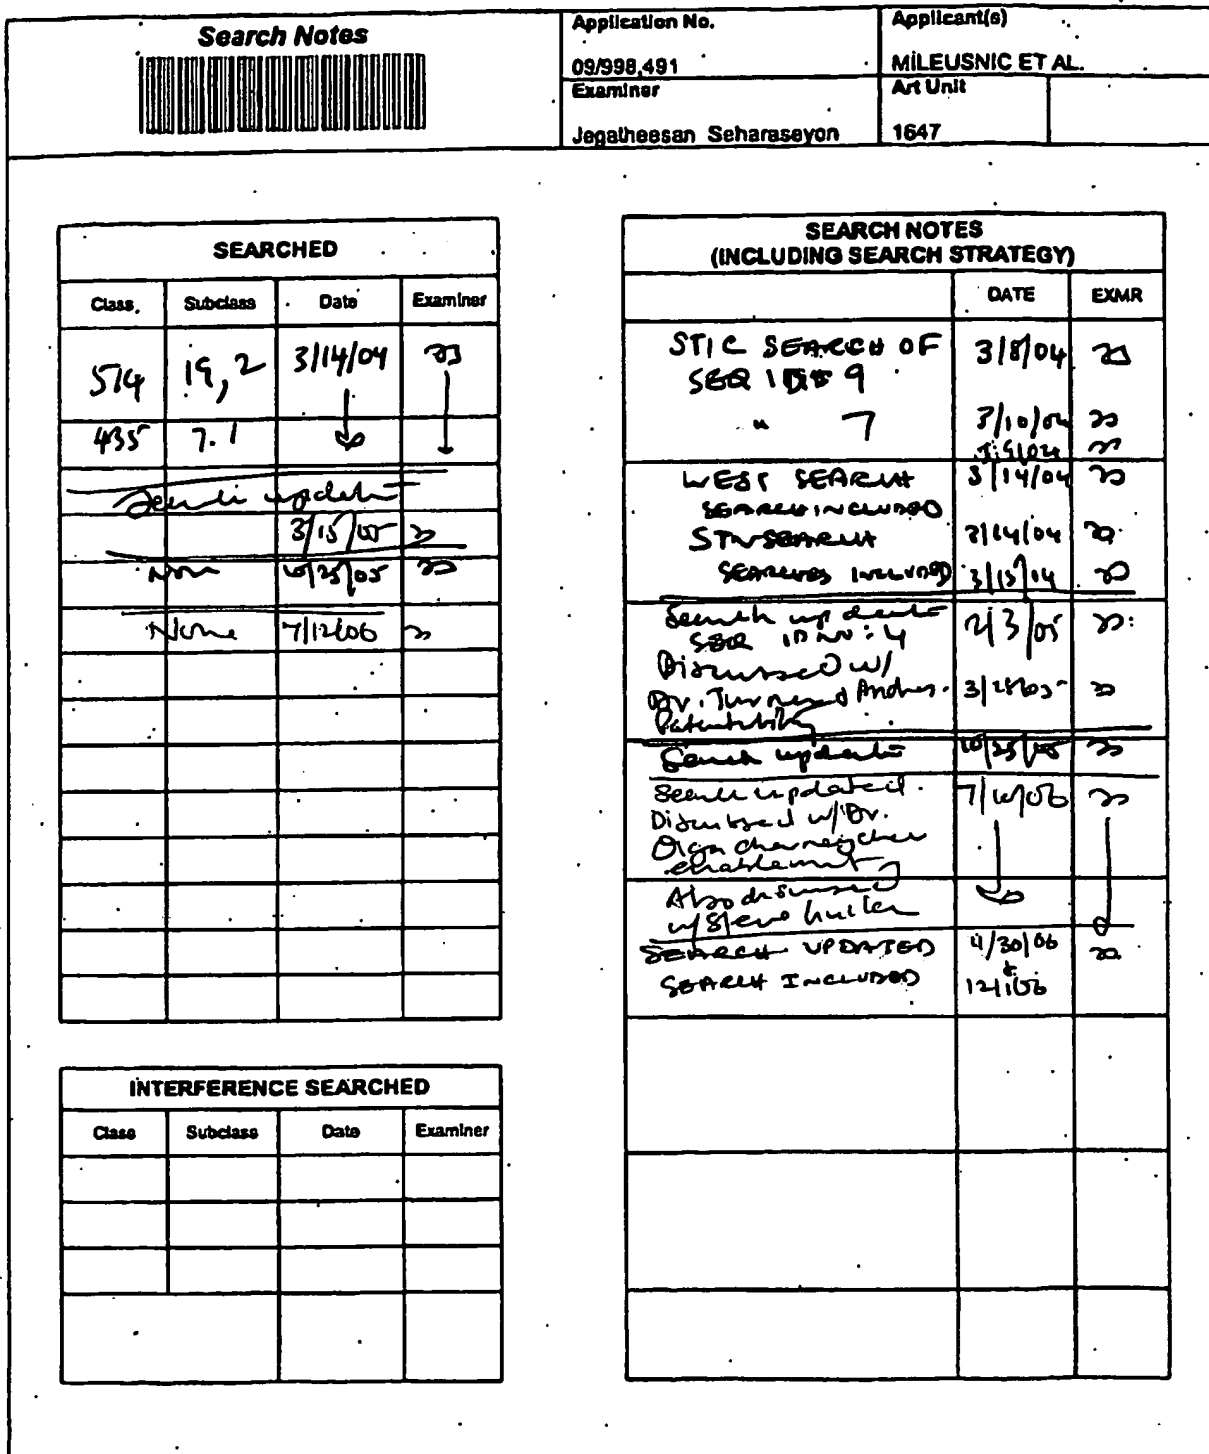 Search Notes
Application No.
Applicant(s)
09/998,491
MILEUSNIC ET AL.
Examiner
Art Unit
Jegatheesan Seharaseyon
1647
SEARCHED
Class Subclass Date Examiner
514 19, 2 3/14/04
435 7.1
Search update
3/15/05
None 10/25/05
None 7/12/06
INTERFERENCE SEARCHED
Class Subclass Date Examiner
SEARCH NOTES
(INCLUDING SEARCH STRATEGY)
DATE EXMR
STIC SEARCH OF 3/8/04
SEQ ID# 9
" 7 3/10/04
WEST SEARCH 3/14/04
SEARCH INCLUDED
STN SEARCH 3/14/04
SEARCHES INCLUDED 3/15/04
Search update 2/3/05
SEQ ID NO: 4
Discussed w/
Dr. Turner &
Patentability
Search update 10/25/05
Search updated.
Discussed w/ Dr.
Olga
enablement
Also discussed
w/ Steve
SEARCH UPDATED 11/30/06
SEARCH INCLUDED &